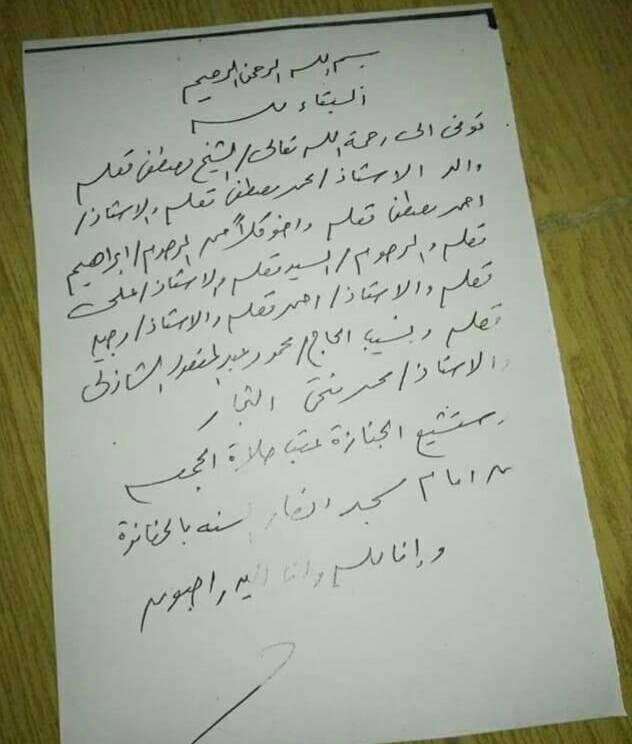 بسم الله الرحمن الرحيم
البقاء لله
توفى الى رحمة الله تعالى / الشيخ مصطفى قعلم
والد الاستاذ / محمد مصطفى قعلم والاستاذ /
احمد مصطفى قعلم واخو كلاً من المرحوم / ابراهيم
قعلم والمرحوم / السيد قعلم والاستاذ / على
قعلم والاستاذ / احمد قعلم والاستاذ / وجيه
قعلم ونسيب الحاج / محمود عبد المقصود الشاذلى
والاستاذ / محمد فتحى النجار
وستشيع الجنازة عقب صلاة الجمعه
من امام مسجد انصار السنه
وإنا لله وانا اليه راجعون